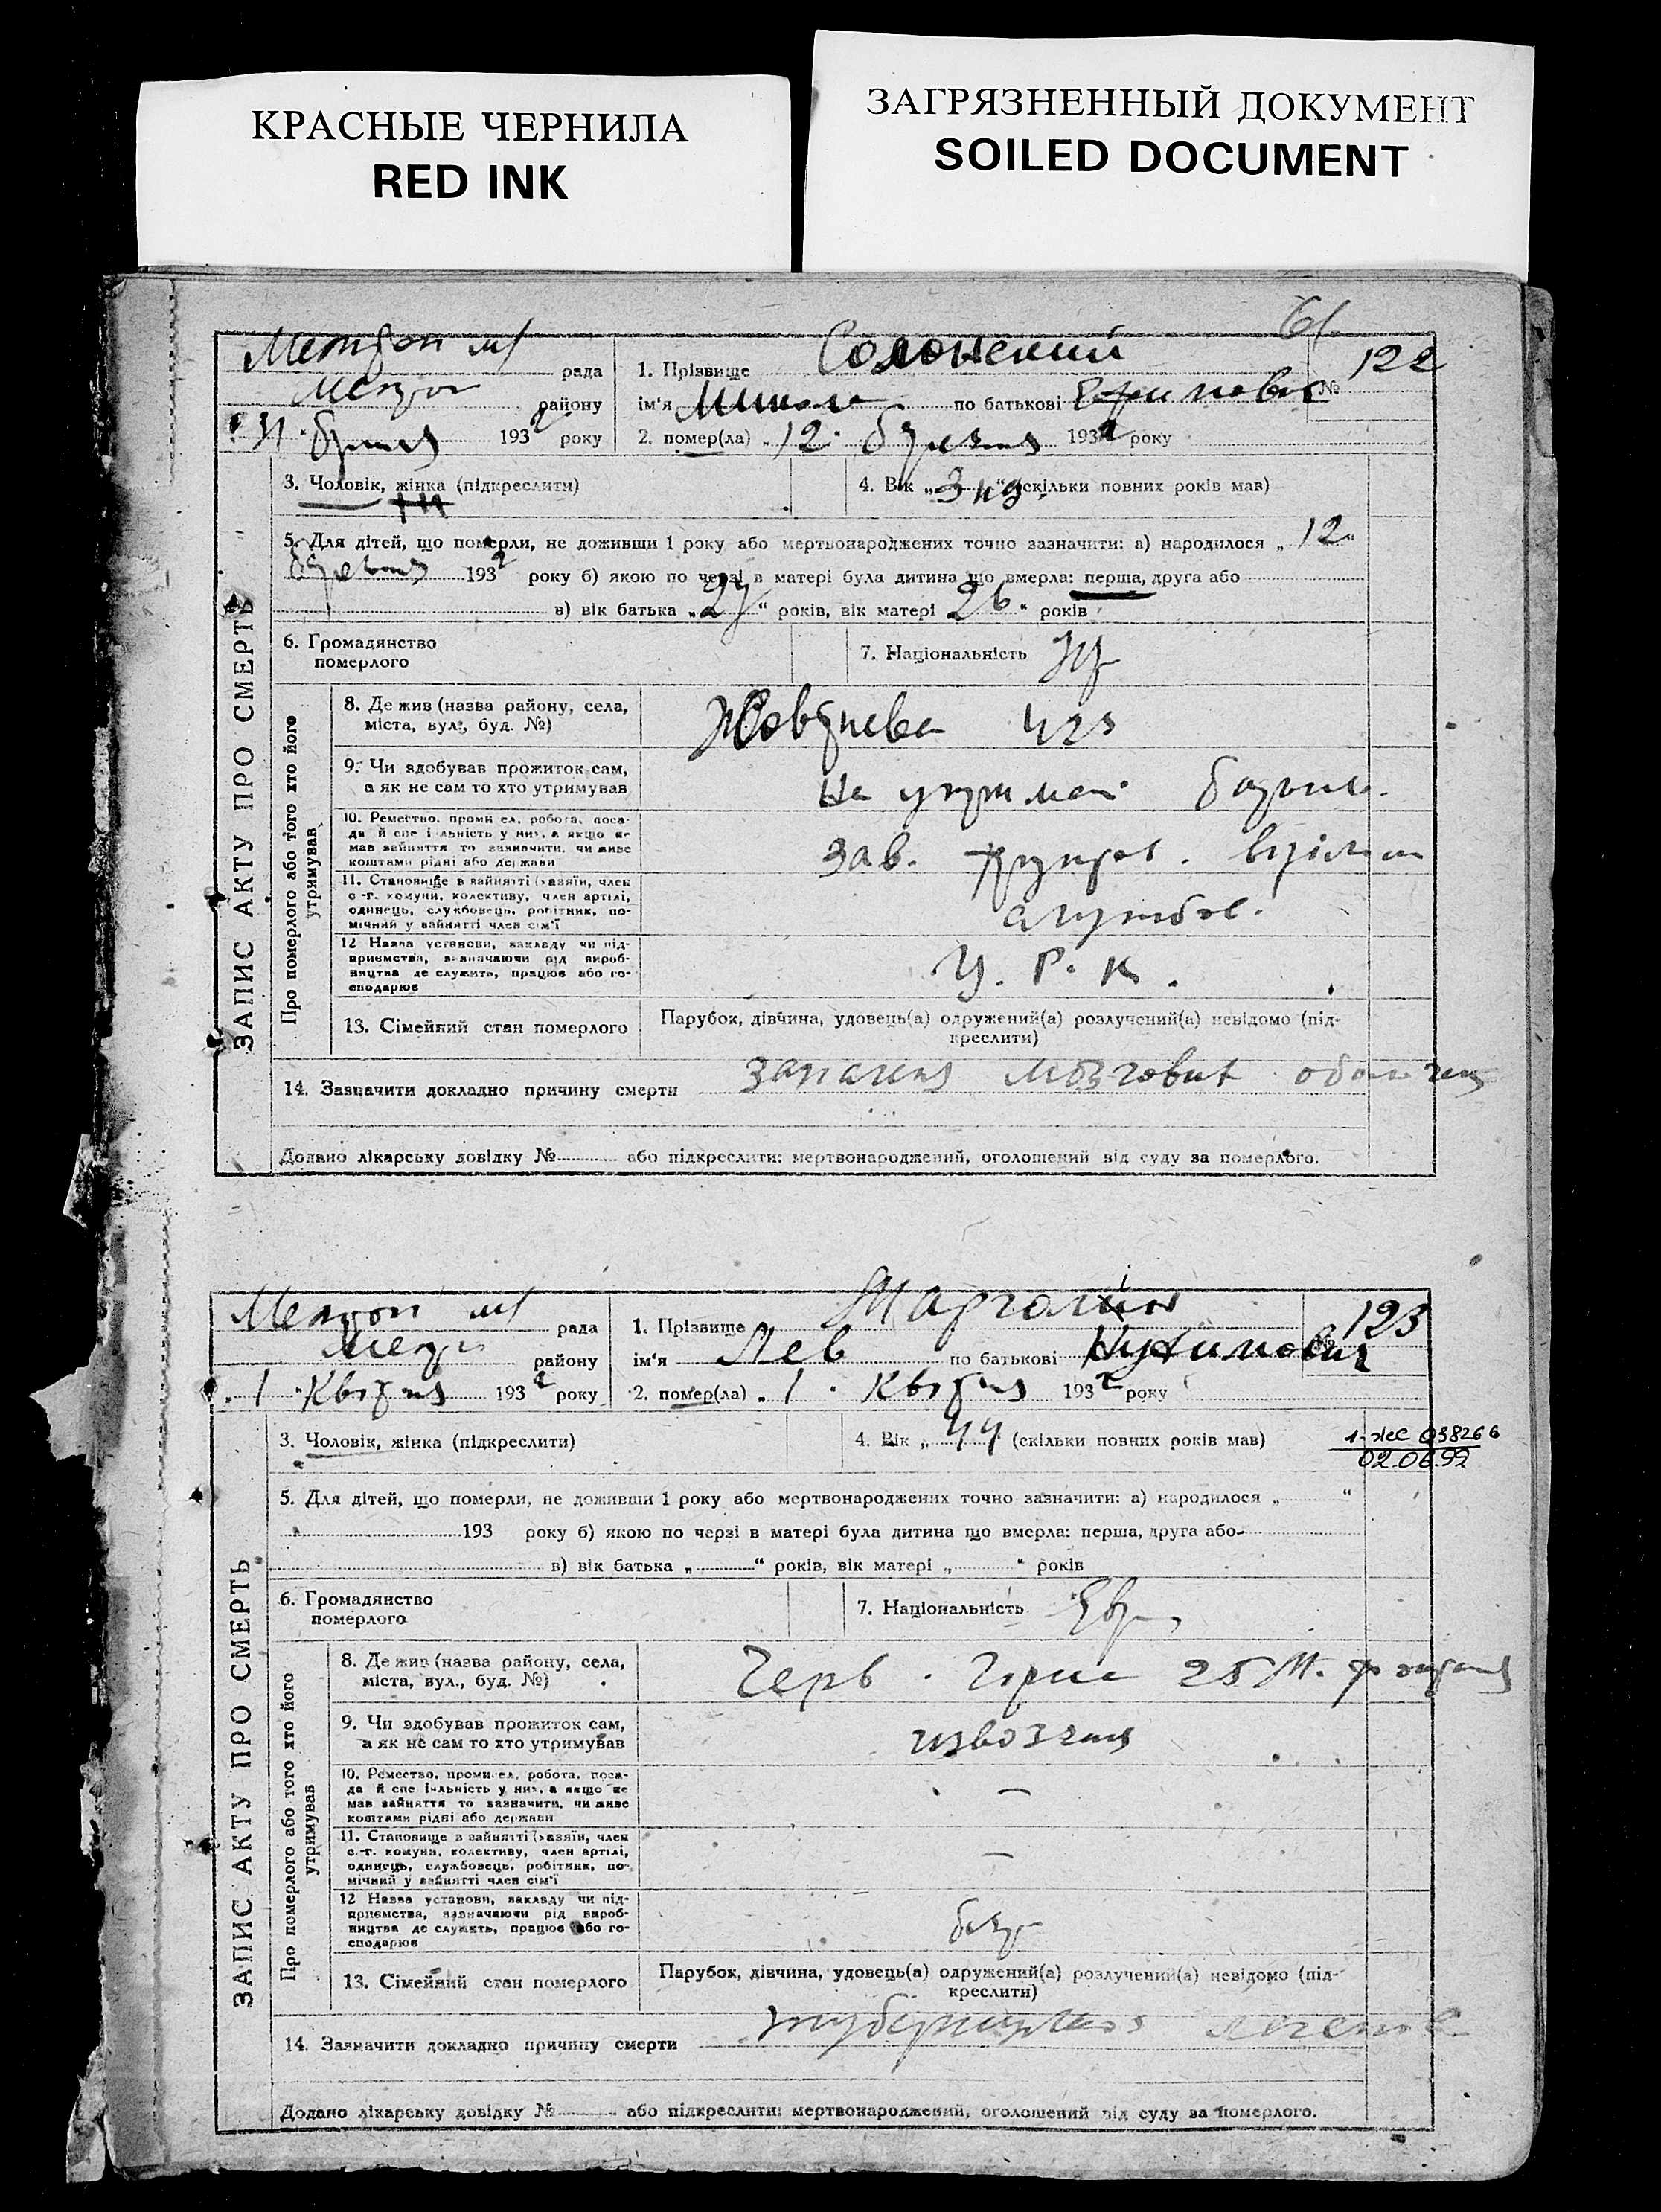 КРАСНЫЕ ЧЕРНИЛА
RED INK
ЗАГРЯЗНЕННЫЙ ДОКУМЕНТ
SOILED DOCUMENT
61
рада
району
31 1932 року
1. Прізвище Солонский
ім'я Микола по батькові
№ 122
2. помер(ла) „12 березня 1932 року
3. Чоловік, жінка (підкреслити)
4. Вік „ “ (скільки повних років мав)
5. Для дітей, що померли, не доживши 1 року або мертвонароджених точно зазначити: а) народилося „12“
березня 1932 року б) якою по черзі в матері була дитина що вмерла: перша, друга або
в) вік батька „27“ років, вік матері 26“ років
6. Громадянство
померлого
7. Національність
ЗАПИС АКТУ ПРО СМЕРТЬ
Про померлого або того хто його
утримував
8. Де жив (назва району, села,
міста, вул., буд. №)
Жовтнева
9. Чи здобував прожиток сам,
а як не сам то хто утримував
На утриман батька
10. Ремество, промисел, робота, поса-
да й спеціяльність у них, а якщо не
мав зайняття то зазначити, чи живе
коштами рідні або держави
Зав.
11. Становище в зайнятті (хазяїн, член
с.-г. комуни, колективу, член артілі,
одинець, службовець, робітник, по-
мічний у зайнятті член сім'ї
службов.
12 Назва установи, закладу чи під-
приємства, зазначаючи рід вироб-
ництва де служить, працює або го-
сподарює
У. Р. К.
13. Сімейний стан померлого
Парубок, дівчина, удовець(а) одружений(а) розлучений(а) невідомо (під-
креслити)
14. Зазначити докладно причину смерти
Запаления мозгових оболочек
Додано лікарську довідку № або підкреслити: мертвонароджений, оголошений від суду за померлого.
рада
району
1 Квітня 1932 року
1. Прізвище Марголін
ім'я Лев по батькові
№ 123
2. помер(ла) „1 Квітня 1932 року
3. Чоловік, жінка (підкреслити)
4. Вік „44 (скільки повних років мав)
02.06.99
5. Для дітей, що померли, не доживши 1 року або мертвонароджених точно зазначити: а) народилося „ “
193 року б) якою по черзі в матері була дитина що вмерла: перша, друга або
в) вік батька „ “ років, вік матері „ “ років
6. Громадянство
померлого
7. Національність Євр
ЗАПИС АКТУ ПРО СМЕРТЬ
Про померлого або того хто його
утримував
8. Де жив (назва району, села,
міста, вул., буд. №)
Черв. 25
9. Чи здобував прожиток сам,
а як не сам то хто утримував
извозчик
10. Ремество, промисел, робота, поса-
да й спеціяльність у них, а якщо не
мав зайняття то зазначити, чи живе
коштами рідні або держави
—
11. Становище в зайнятті (хазяїн, член
с.-г. комуни, колективу, член артілі,
одинець, службовець, робітник, по-
мічний у зайнятті член сім'ї
—
12 Назва установи, закладу чи під-
приємства, зазначаючи рід вироб-
ництва де служить, працює або го-
сподарює
13. Сімейний стан померлого
Парубок, дівчина, удовець(а) одружений(а) розлучений(а) невідомо (під-
креслити)
14. Зазначити докладно причину смерти
Додано лікарську довідку № або підкреслити: мертвонароджений, оголошений від суду за померлого.